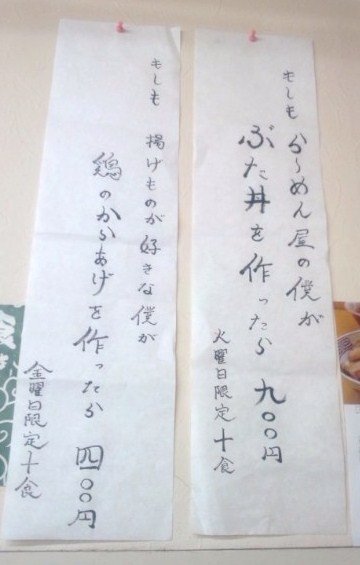 もしも らーめん屋の僕が
ぶた丼を作ったら 九〇〇円
火曜日限定十食
もしも 揚げものが好きな僕が
鶏のからあげを作ったら 四〇〇円
金曜日限定十食